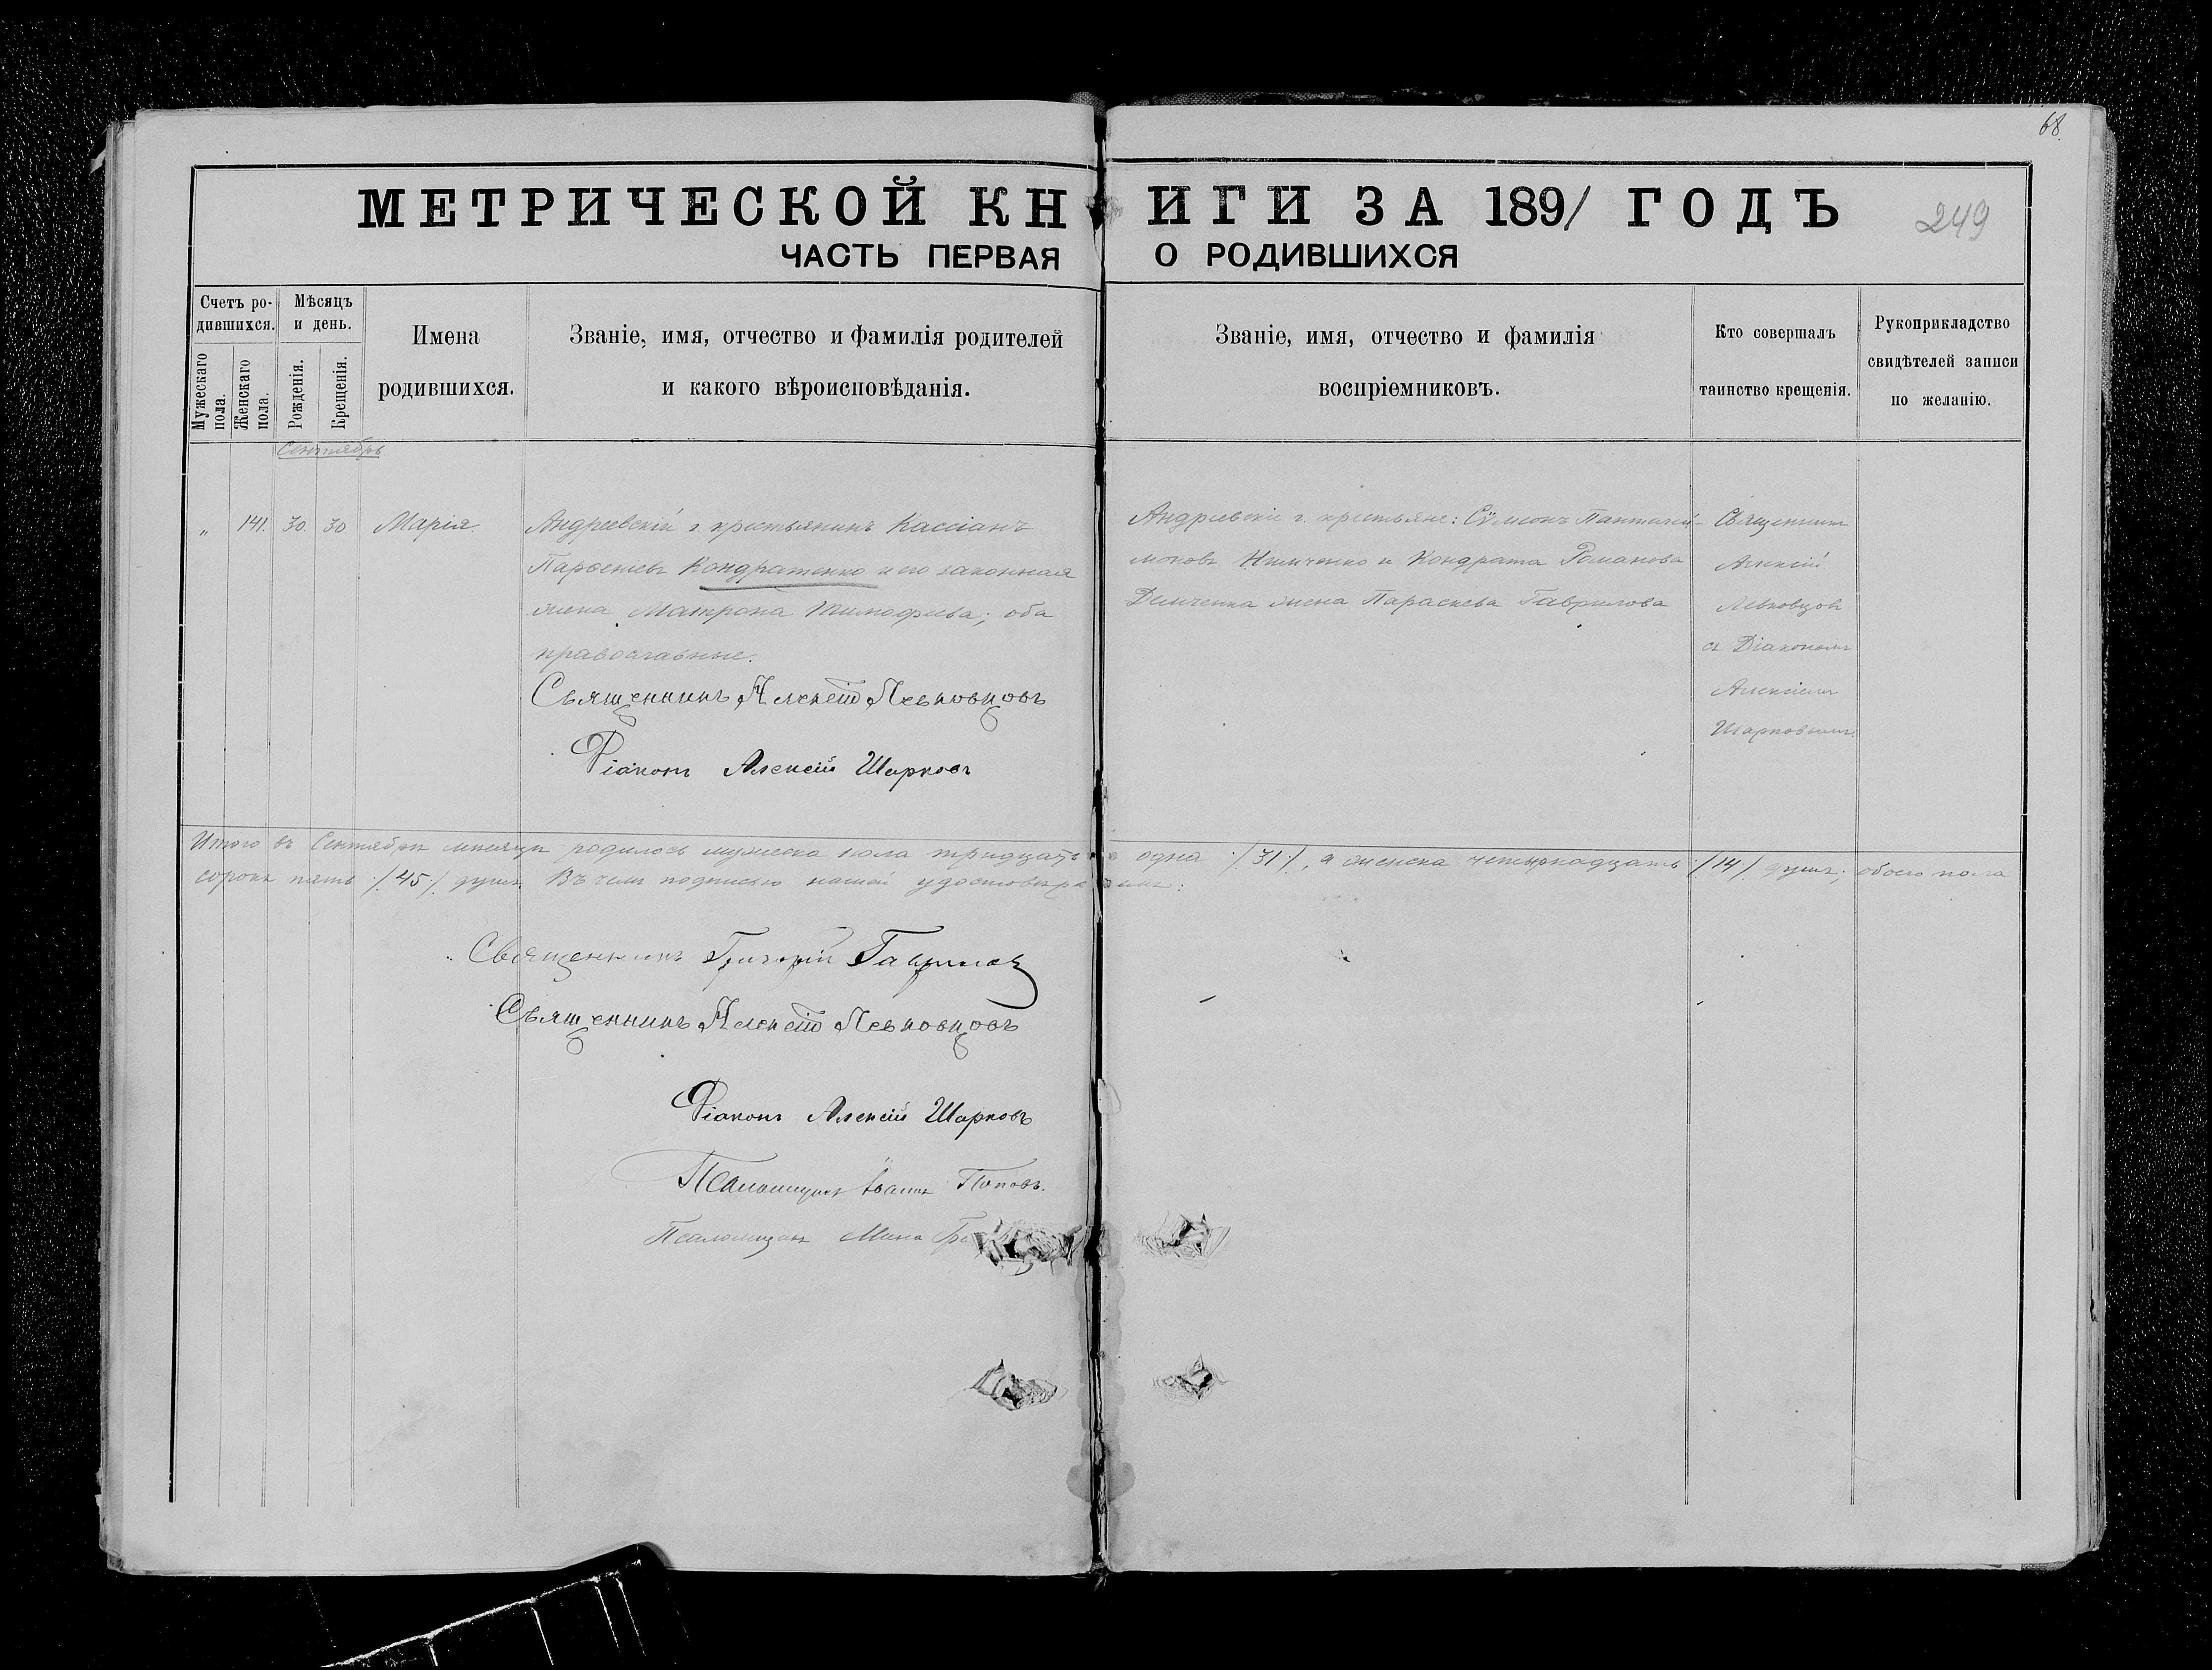 68.
МЕТРИЧЕСКОЙ КНИГИ ЗА 1891 ГОДЪ
249
ЧАСТЬ ПЕРВАЯ О РОДИВШИХСЯ
Счетъ ро-
дившихся.
Мужескаго
пола.
Женскаго
пола.
Мѣсяцъ
и день.
Рожденія.
Крещенія.
Имена
родившихся.
Званіе, имя, отчество и фамилія родителей
и какого вѣроисповѣданія.
Званіе, имя, отчество и фамилія
воспріемниковъ.
Кто совершалъ
таинство крещенія.
Рукоприкладство
свидѣтелей записи
по желанію.
Сентябрь
" 141. 30. 30 Марія.
Андреевскій г. крестьянинъ Кассіанъ
Парѳеніевъ Кондратенко и его законная
жена Матрона Тимофеева; оба
православные.
Священникъ Алексій Левковцовъ
Діаконъ Алексій Шарковъ
Андреевскіе г. крестьяне: Сѵмеонъ Пантелей-
моновъ Нимченко и Кондрата Романова
Демченка жена Параскева Гаврилова
Священникъ
Алексій
Левковцовъ
съ Діакономъ
Алексіемъ
Шарковымъ.
Итого въ Сентябрѣ мѣсяцѣ родилось мужеска пола тридцать одна /31/, а женска четырнадцать /14/ душъ; обоего пола
сорокъ пять /45/ душъ. Въ чемъ подписью нашей удостовѣряемъ:
Священникъ Григорій Гавриловъ
Священникъ Алексій Левковцовъ
Діаконъ Алексій Шарковъ
Псаломщикъ Іоаннъ Поповъ.
Псаломщикъ Мина